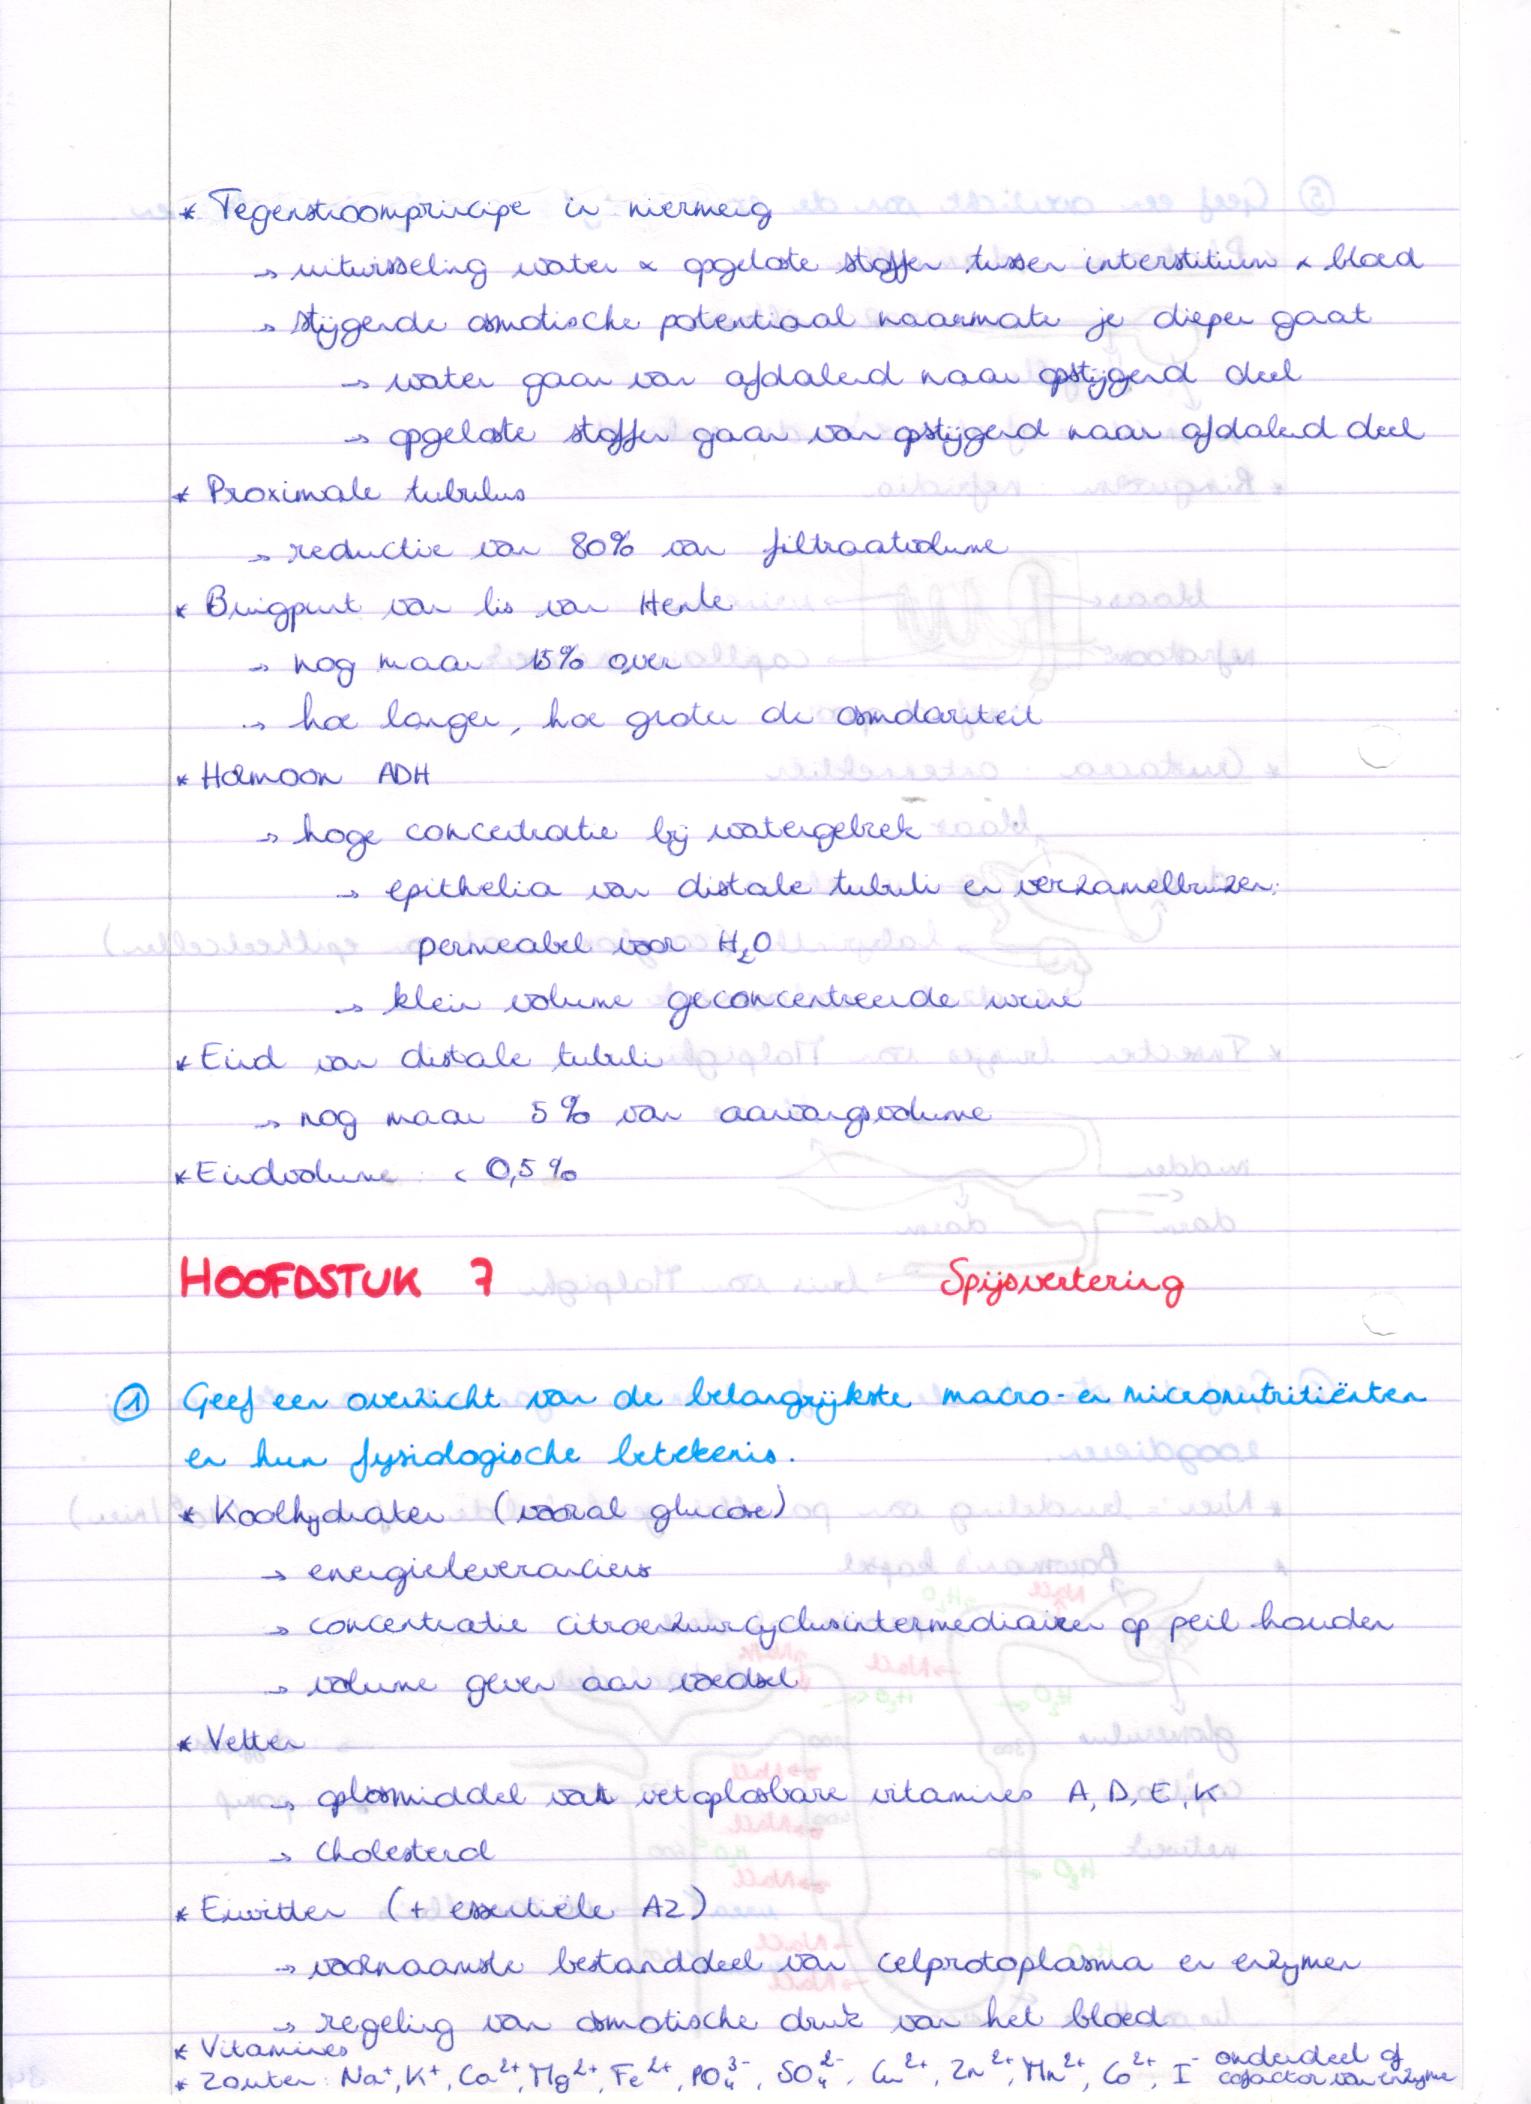 * Tegenstroomprincipe in niermerg
→ uitwisseling water & opgeloste stoffen tussen interstitium & bloed
→ stijgende osmotische potentiaal naarmate je dieper gaat
→ water gaan van afdalend naar opstijgend deel
→ opgeloste stoffen gaan van opstijgend naar afdalend deel
* Proximale tubulus
→ reductie van 80% van filtraatvolume
* Buigpunt van lis van Henle
→ nog maar 15% over
→ hoe langer, hoe groter de osmolariteit
* Hormoon ADH
→ hoge concentratie bij watergebrek
→ epithelia van distale tubuli en verzamelbuizen:
permeabel voor H₂O
→ klein volume geconcentreerde urine
* Eind van distale tubuli
→ nog maar 5% van aanvangsvolume
* Eindvolume : < 0,5%
HOOFDSTUK 7 Spijsvertering
① Geef een overzicht van de belangrijkste macro- en micronutritiënten
en hun fysiologische betekenis.
* Koolhydraten (vooral glucose)
→ energieleveranciers
→ concentratie citroenzuurcyclusintermediairen op peil houden
→ volume geven aan voedsel
* Vetten
→ oplosmiddel van vetoplosbare vitamines A, D, E, K
→ cholesterol
* Eiwitten (+ essentiële AZ)
→ voornaamste bestanddeel van celprotoplasma en enzymen
→ regeling van osmotische druk van het bloed
* Vitamines
* Zouten: Na⁺, K⁺, Ca²⁺, Mg²⁺, Fe²⁺, PO₄³⁻, SO₄²⁻, Cu²⁺, Zn²⁺, Mn²⁺, Co²⁺, I⁻ onderdeel of
cofactor van enzyme